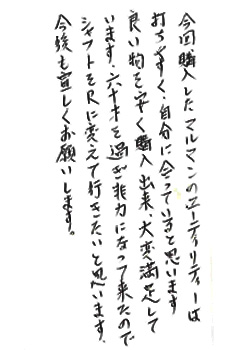 今回購入したマルマンのユーティリティーは
打ちやすく、自分に合っていると思います
良い物を安く購入出来、大変満足して
います。六十才を過ぎ非力になって来たので
シャフトをRに変えて行きたいと思います。
今後も宜しくお願いします。